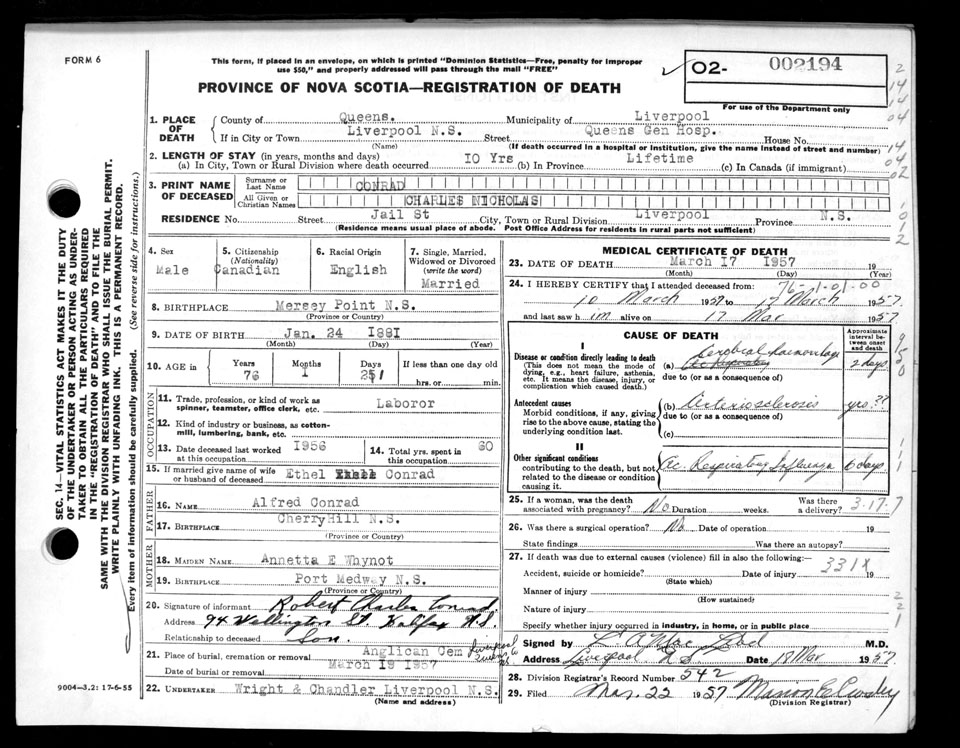 FORM 6
This form, if placed in an envelope, on which is printed "Dominion Statistics—Free, penalty for improper
use $50," and properly addressed will pass through the mail "FREE"
O2- 002194
For use of the Department only
PROVINCE OF NOVA SCOTIA—REGISTRATION OF DEATH
1. PLACE OF DEATH
County of Queens. Municipality of Liverpool
If in City or Town Liverpool N.S. Street Queens Gen Hosp. House No.
(Name) (If death occurred in a hospital or institution, give the name instead of street and number)
2. LENGTH OF STAY (in years, months and days)
(a) In City, Town or Rural Division where death occurred 10 Yrs (b) In Province Lifetime (c) In Canada (if immigrant)
3. PRINT NAME OF DECEASED
Surname or Last Name CONRAD
All Given or Christian Names CHARLES NICHOLAS
RESIDENCE No. Street Jail St City, Town or Rural Division Liverpool Province N.S.
(Residence means usual place of abode. Post Office Address for residents in rural parts not sufficient)
4. Sex Male
5. Citizenship (Nationality) Canadian
6. Racial Origin English
7. Single, Married, Widowed or Divorced (write the word) Married
8. BIRTHPLACE Mersey Point N.S.
(Province or Country)
9. DATE OF BIRTH Jan. 24 1881
(Month) (Day) (Year)
10. AGE in Years 76 Months 1 Days If less than one day old hrs. or min.
OCCUPATION
11. Trade, profession, or kind of work as spinner, teamster, office clerk, etc. Laboror
12. Kind of industry or business, as cotton-mill, lumbering, bank, etc.
13. Date deceased last worked at this occupation 1956
14. Total yrs. spent in this occupation 60
15. If married give name of wife or husband of deceased Ethel Conrad
FATHER
16. NAME Alfred Conrad
17. BIRTHPLACE CherryHill N.S.
(Province or Country)
MOTHER
18. MAIDEN NAME Annetta E Whynot
19. BIRTHPLACE Port Medway N.S.
(Province or Country)
20. Signature of informant Robert Charles Conrad
Address 94 Wellington St. Halifax N.S.
Relationship to deceased Son.
21. Place of burial, cremation or removal Anglican Cem Liverpool
Date of burial or removal March 19 1957
22. UNDERTAKER Wright & Chandler Liverpool N.S.
(Name and address)
MEDICAL CERTIFICATE OF DEATH
23. DATE OF DEATH March 17 1957 19
(Month) (Day) (Year)
24. I HEREBY CERTIFY that I attended deceased from:
76-1-01-00
10 March 1957 to 17 March 1957
and last saw him alive on 17 Mar 1957
CAUSE OF DEATH
Approximate interval between onset and death
I
Disease or condition directly leading to death
(This does not mean the mode of dying, e.g., heart failure, asthenia, etc. It means the disease, injury, or complication which caused death.)
(a) Cerebral Haemorrhage 2 days
due to (or as a consequence of)
Antecedent causes
Morbid conditions, if any, giving rise to the above cause, stating the underlying condition last.
(b) Arteriosclerosis yrs. ??
due to (or as a consequence of)
(c)
II
Other significant conditions
contributing to the death, but not related to the disease or condition causing it.
Ac. Respiratory Influenza 6 days
25. If a woman, was the death associated with pregnancy? No Duration weeks. Was there a delivery? 3-17-7
26. Was there a surgical operation? No. Date of operation 19
State findings Was there an autopsy?
27. If death was due to external causes (violence) fill in also the following:—
Accident, suicide or homicide? Date of injury 19
331X
(State which)
Manner of injury
(How sustained)
Nature of injury
Specify whether injury occurred in industry, in home, or in public place
Signed by M.D.
Address Liverpool N.S. Date 18 Mar 1957.
28. Division Registrar's Record Number 542
29. Filed Mar. 22 1957
(Division Registrar)
SEC. 14—VITAL STATISTICS ACT MAKES IT THE DUTY
OF THE UNDERTAKER OR PERSON ACTING AS UNDER-
TAKER TO OBTAIN ALL THE PARTICULARS REQUIRED
IN THE "REGISTRATION OF DEATH" AND TO FILE THE
SAME WITH THE DIVISION REGISTRAR WHO SHALL ISSUE THE BURIAL PERMIT.
WRITE PLAINLY WITH UNFADING INK. THIS IS A PERMANENT RECORD.
Every item of information should be carefully supplied. (See reverse side for instructions.)
9004—3,2: 17-6-55